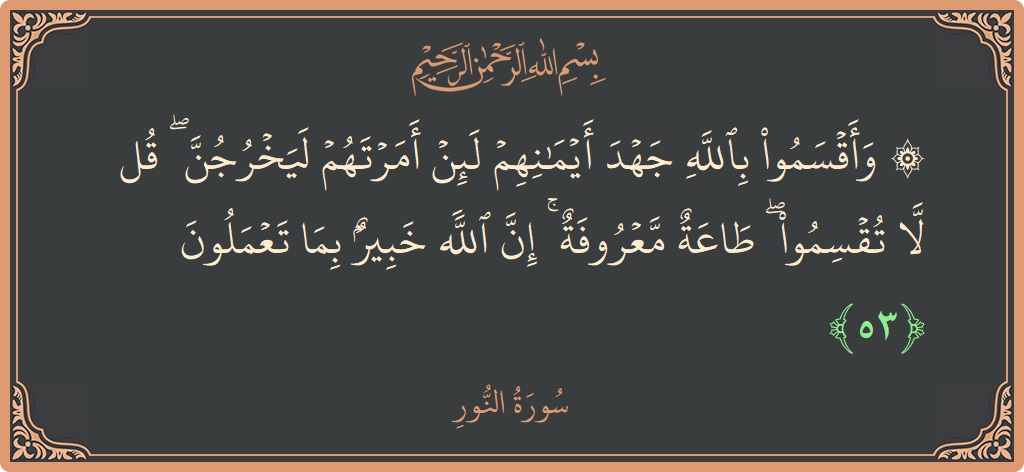 بِسْمِ اللهِ الرَّحْمٰنِ الرَّحِيْمِ
۞ وَأَقۡسَمُواْ بِٱللَّهِ جَهۡدَ أَيۡمَٰنِهِمۡ لَئِنۡ أَمَرۡتَهُمۡ لَيَخۡرُجُنَّۖ قُل
لَّا تُقۡسِمُواْۖ طَاعَةٞ مَّعۡرُوفَةٌۚ إِنَّ ٱللَّهَ خَبِيرُۢ بِمَا تَعۡمَلُونَ
﴿٥٣﴾
سُورَةُ النُّورِ